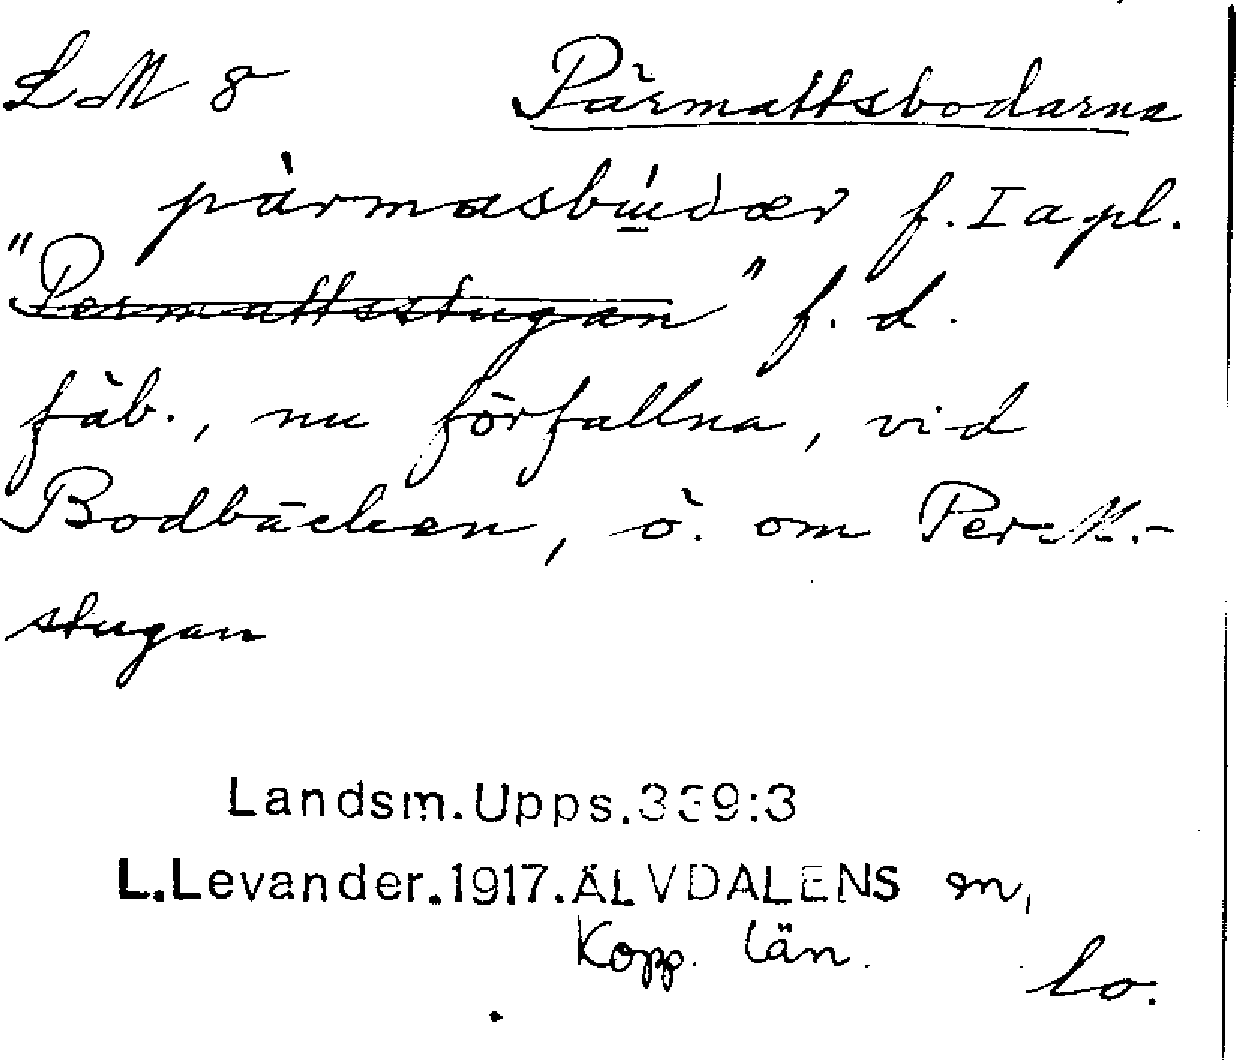 LM 8 Pärmattsbodarna
pärmasbúdær f. I a pl.
"Permattsstugan" f. d.
fäb., nu förfallna, vid
Bodbäcken, ö. om Per-M.-
stugan
Landsm.Upps.339:3
L.Levander.1917.ÄLVDALENS sn,
Kopp. län.
lo.